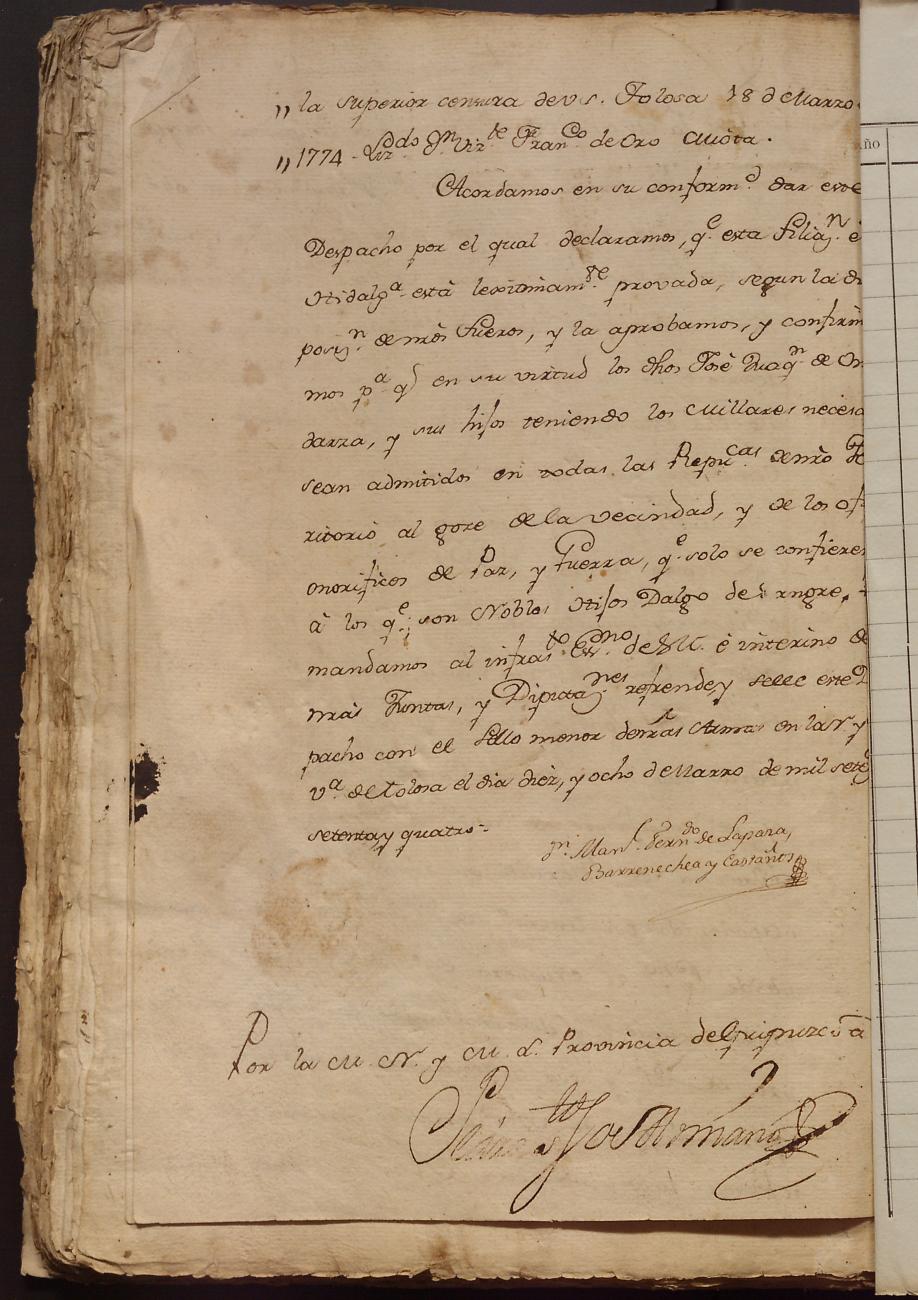 ,, la superior censura de vs. Tolosa 18 de Marzo
,, 1774 - Lizdo Dn Vizte Franco de Oro Miota.
Acordamos en su conformd dar este
Despacho por el qual declaramos, qe esta Filiazn e
Hidalga está lexitimamte provada, segun la di
posizn de nrõs Fueros, y la aprobamos, y confirm
mos pa qe en su virtud los dhos José Juaqn de On
darza, y sus hijos teniendo los Millares necesa
sean admitidos en todas las Repucas de nrõ Te
ritorio al goze de la vecindad, y de los ofi
onorificos de Paz, y Guerra, qe solo se confieren
à los qe son Nobles Hijos Dalgo de sangre,
mandamos al infrasto Essno de S.M. è interino de
nrãs Juntas, y Diputaznes refrende, y selle este D
pacho con el Sello menor de nrãs Armas en la N. y
va de Tolosa el dia diez, y ocho de Marzo de mil sete
setenta, y quatro-
Dn Manl Ferndo de
Barrenechea y Castaños
Por la M. N. y M. L. Provincia de Guipuzcoa